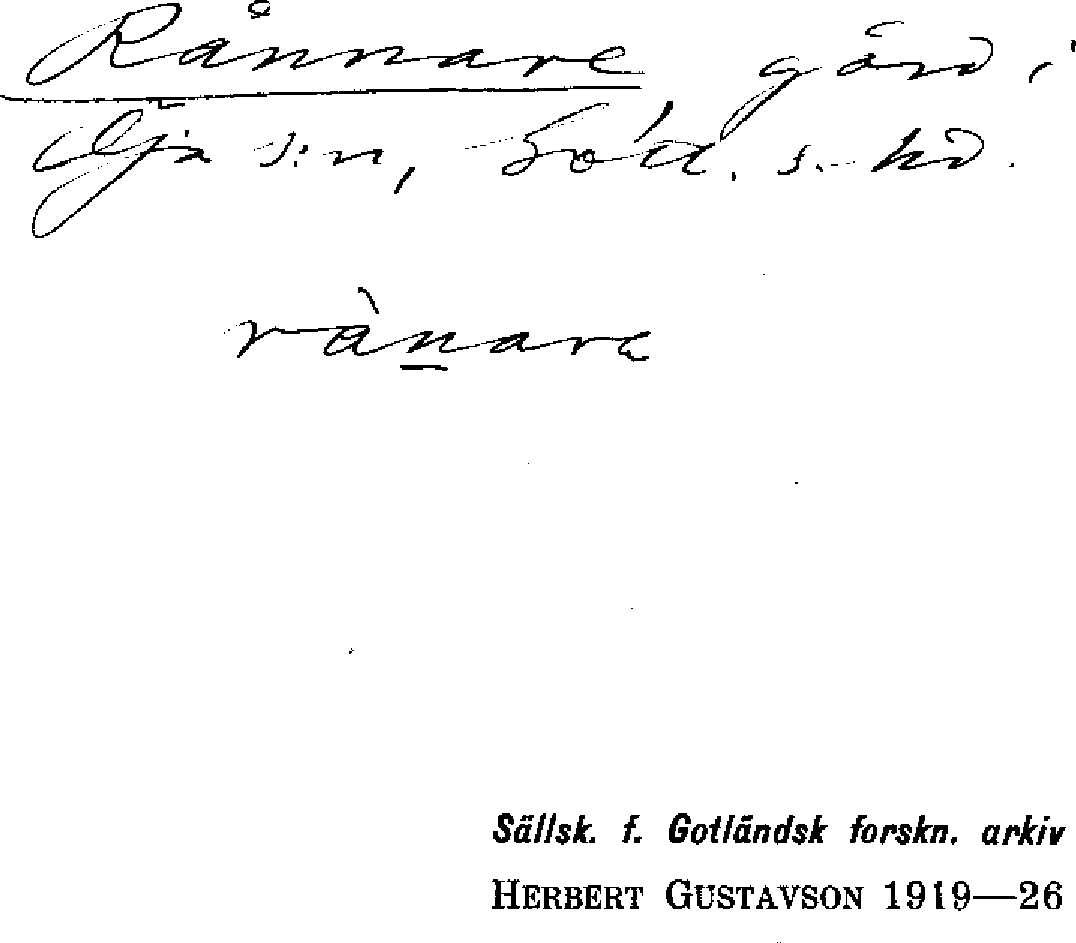 Rånnare gård i
Öja s:n, Gotl. s. hd.
rànare
Sällsk. f. Gotländsk forskn. arkiv
HERBERT GUSTAVSON 1919—26